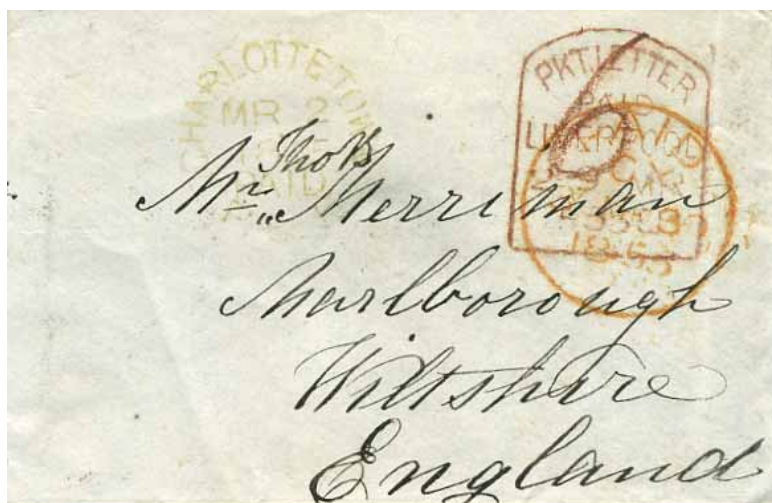 CHARLOTTETOWN
MR 2
PAID
PKT. LETTER
PAID
LIVERPOOL
PAID
1863
6
Thos B
Mr. Merriman
Marlborough
Wiltshire
England